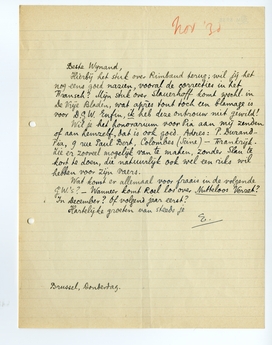 Nov '30
Beste Wynand,
Hierbij het stuk over Rimbaud terug; wil jij het
nog eens goed nazien, vooral de correcties in het
Fransch? Mijn stuk over Slauerhoff komt geheel in
De Vrije Bladen, wat après tout toch een blamage is
voor D.G.W. Enfin, ik heb deze onbrouw niet gewild!
Wil je het honorarium voor Pia aan mij zenden
of aan hemzelf, dat is ook goed. Adres: P. Durand-
Pia, 9 rue Paul Bert, Colombes (Seine) – Frankrijk.
zie er zooveel mogelijk van te maken, zonder Stan te
kort te doen, die natuurlijk ook wel een reis wil
hebben voor zijn
Wat komt er allemaal voor fraais in de volgende
G.W.'s? – Wanneer komt Roel los over Nutteloos Verzet?
In December? of volgend jaar eerst?
Hartelijke groeten van steeds je
E.
Brussel, Donderdag.